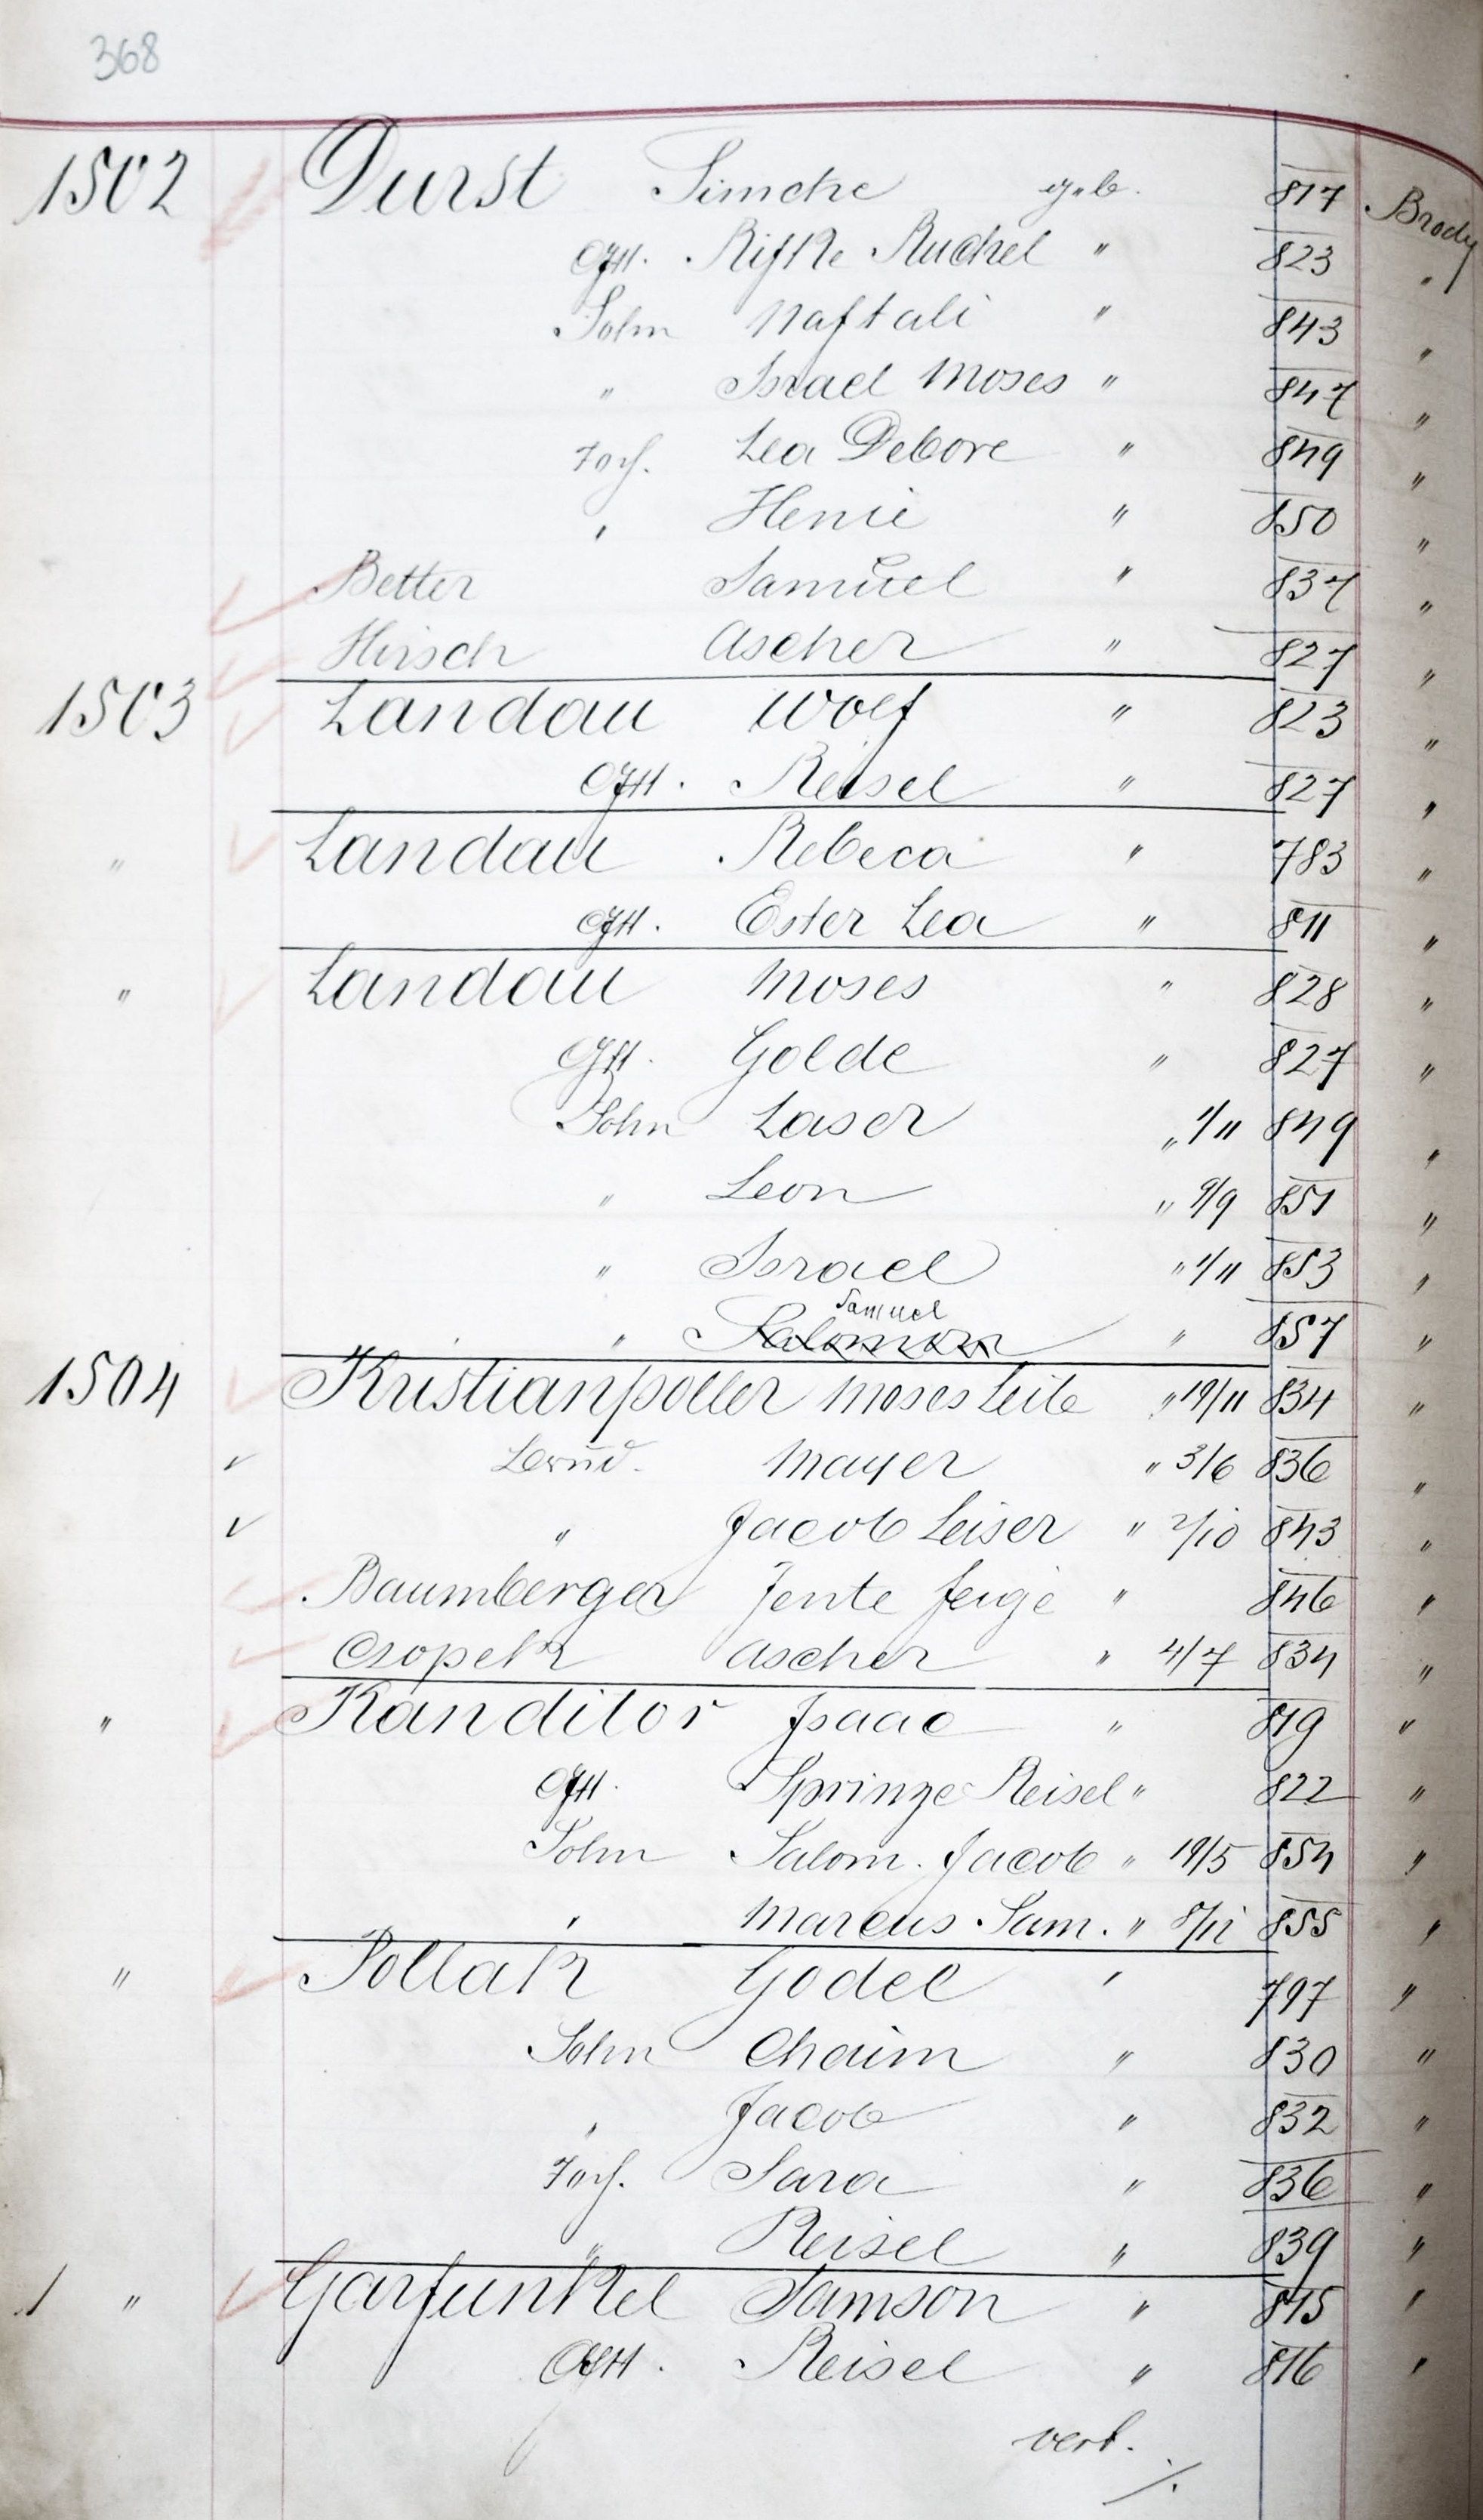 368
1502 Durst Simche geb. 817 Brody
Gtt. Rifke Ruchel " 823 "
Sohn Naftali " 843 "
" Israel Moses " 847 "
Toch. Lea Debore " 849 "
" Henie " 850 "
Better Samuel " 837 "
Hirsch Ascher " 827 "
1503 Landau Wolf " 823 "
Gtt. Reisel " 827 "
" Landau Rebeca " 783 "
Gtt. Ester Lea " 811 "
" Landau Moses " 828 "
Gtt. Golde " 827 "
Sohn Laser " 1/11 849 "
" Leon " 9/9 851 "
" Israel " 1/11 853 "
Samuel
" Salomon " 857 "
1504 Kristianpoller Moses Leib " 19/11 834 "
Mayer " 3/6 836 "
" Jacob Leiser " 2/10 843 "
Baumberger Jente Feige " 846 "
Csopek Ascher " 4/7 834 "
" Kanditor Isaac " 819 "
Gtt. Sprinze Reisel " 822 "
Sohn Salom. Jacob " 19/5 854 "
" Marcus Sam. " 8/11 855 "
" Pollak Godel " 797 "
Sohn Chaim " 830 "
" Jacob " 832 "
Toch. Sara " 836 "
" Reisel " 839 "
1 " Garfunkel Samson " 815 "
Gtt. Reisel " 816 "
vert.
./.